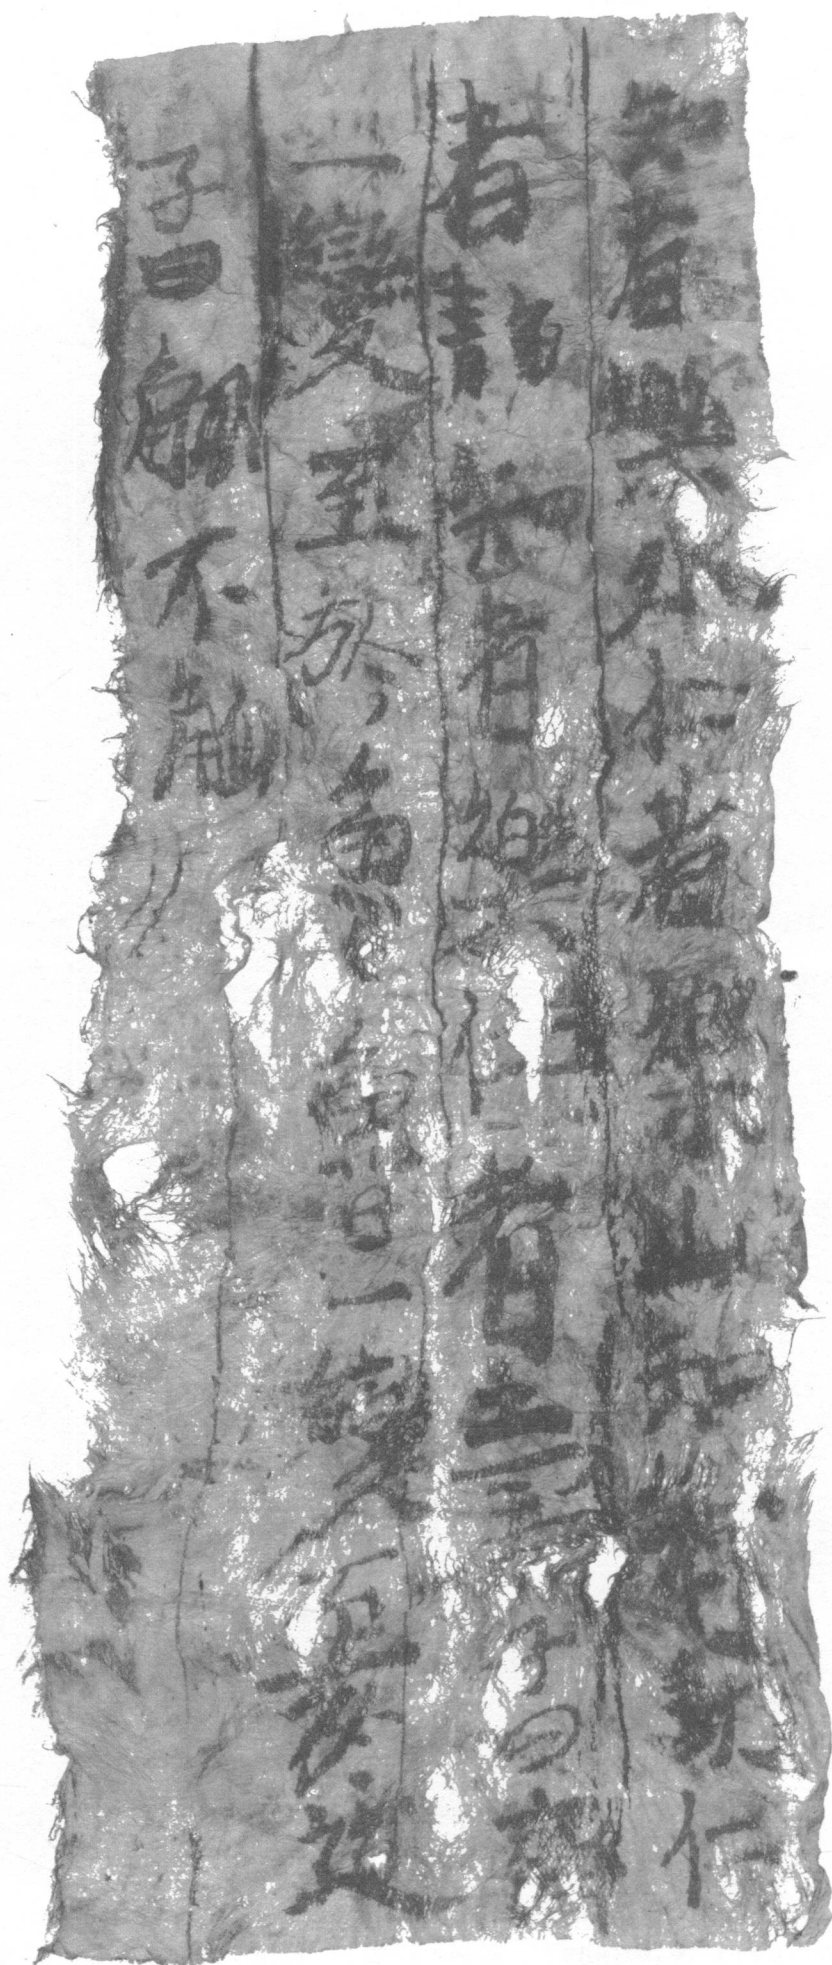 知者樂水仁者樂山知者動仁
者靜知者樂仁者壽子曰齊
一變至於魯魯一變至於道
子曰觚不觚